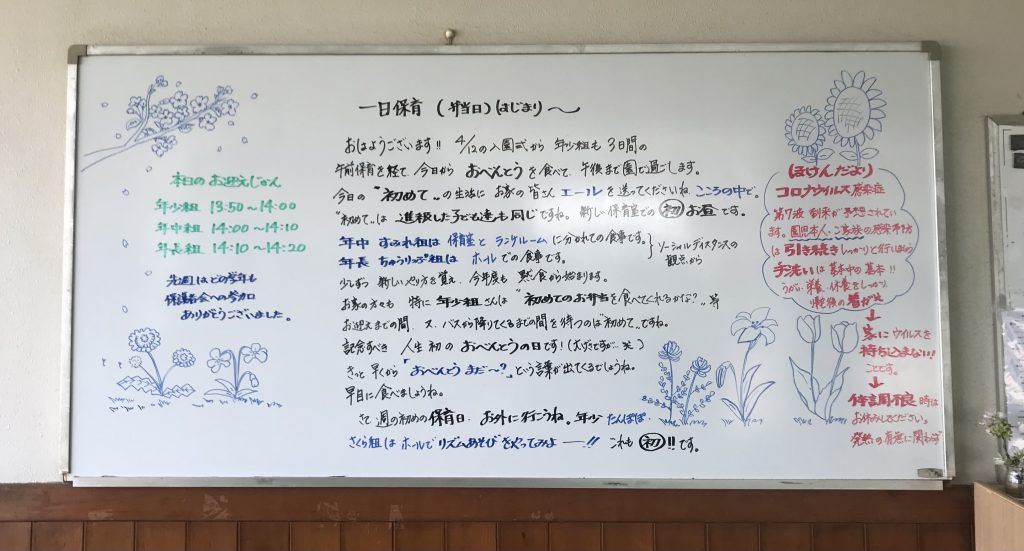 本日のお迎えじかん
年少組 13:50~14:00
年中組 14:00~14:10
年長組 14:10~14:20
先週はどの学年も
保護者会への参加
ありがとうございました。
一日保育 (弁当日) はじまり~
おはようございます!! 4/12の入園式から 年少組も 3日間の
午前保育を経て 今日から おべんとうを食べて、午後まで園で過ごします。
今日の "初めて" の生活に お家の皆さん エールを送ってくださいね、こころの中で。
"初めて"は 進級した子ども達も同じですね。新しい保育室での 初 お昼です。
年中 すみれ組は 保育室と ランチルームに分かれての食事です。
年長 ちゅうりっぷ組は ホールでの食事です。
ソーシャルディスタンスの
観点から
少しずつ 新しいやり方を覚え、今年度も 黙食から始まります。
お家の方々も 特に年少組さんは "初めてのお弁当を食べてくれるかな?"等
お迎えまでの間、又、バスから降りてくるまでの間を待つのは"初めて"ですね。
記念すべき 人生初の おべんとうの日です!(大げさですが…笑)
きっと早くから「おべんとうまだ~?」という言葉が出てくるでしょうね。
早目に食べましょうね。
さて 週の初めの保育日、お外に行こうね。年少 たんぽぽ
さくら組は ホールで リズムあそびをやってみよ――!! これも 初!! です。
ほけんだより
コロナウイルス感染症
第7波 到来が予想されてい
ます。園児本人・ご家族の感染予防
は引き続きしっかりと行いましょう
手洗いは基本中の基本!!
うがい・栄養・休養をしっかり
↓
家にウイルスを
持ち込まない!
ことです。
↓
体調不良時は
お休みしてください。
発熱の有無に関わらず